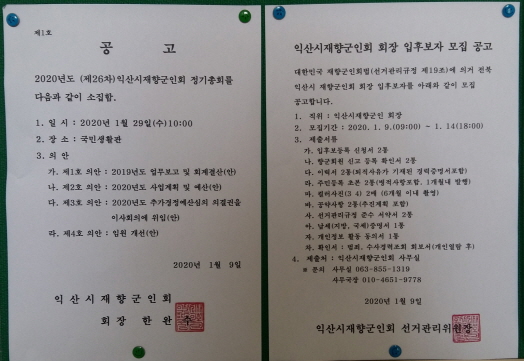 제1호
공 고
2020년도 (제26차)익산시재향군인회 정기총회를
다음과 같이 소집함.
1. 일 시 : 2020년 1월 29일(수)10:00
2. 장 소 : 국민생활관
3. 의 안
가. 제1호 의안 : 2019년도 업무보고 및 회계결산(안)
나. 제2호 의안 : 2020년도 사업계획 및 예산(안)
다. 제3호 의안 : 2020년도 추가경정예산심의 의결권을
이사회의에 위임(안)
라. 제4호 의안 : 임원 개선(안)
2020년 1월 9일
익 산 시 재 향 군 인 회
회 장 한 완 수
익산시재향군인회 회장 입후보자 모집 공고
대한민국 재향군인회법(선거관리규정 제19조)에 의거 전북
익산시 재향군인회 회장 입후보자를 아래와 같이 모집
공고합니다.
1. 직위 : 익산시재향군인회 회장
2. 모집기간 : 2020. 1. 9.(09:00) ~ 1. 14(18:00)
3. 제출서류
가. 입후보등록 신청서 2통
나. 향군회원 신고 등록 확인서 2통
다. 이력서 2통(퇴직사유가 기재된 경력증명서포함)
라. 주민등록 초본 2통(병적사항포함, 1개월내 발행)
마. 컬러사진(3×4) 2매 (6개월 이내 촬영)
바. 공약사항 2통(추진계획 포함)
사. 선거관리규정 준수 서약서 2통
아. 납세(지방, 국세)증명서 1통
자. 개인정보 활용 동의서 1통
차. 확인서 : 범죄, 수사경력조회 회보서(개인열람 후)
4. 제출처 : 익산시재향군인회 사무실
※ 문의 사무실 063-855-1319
사무국장 010-4651-9778
2020년 1월 9일
익산시재향군인회 선거관리위원장